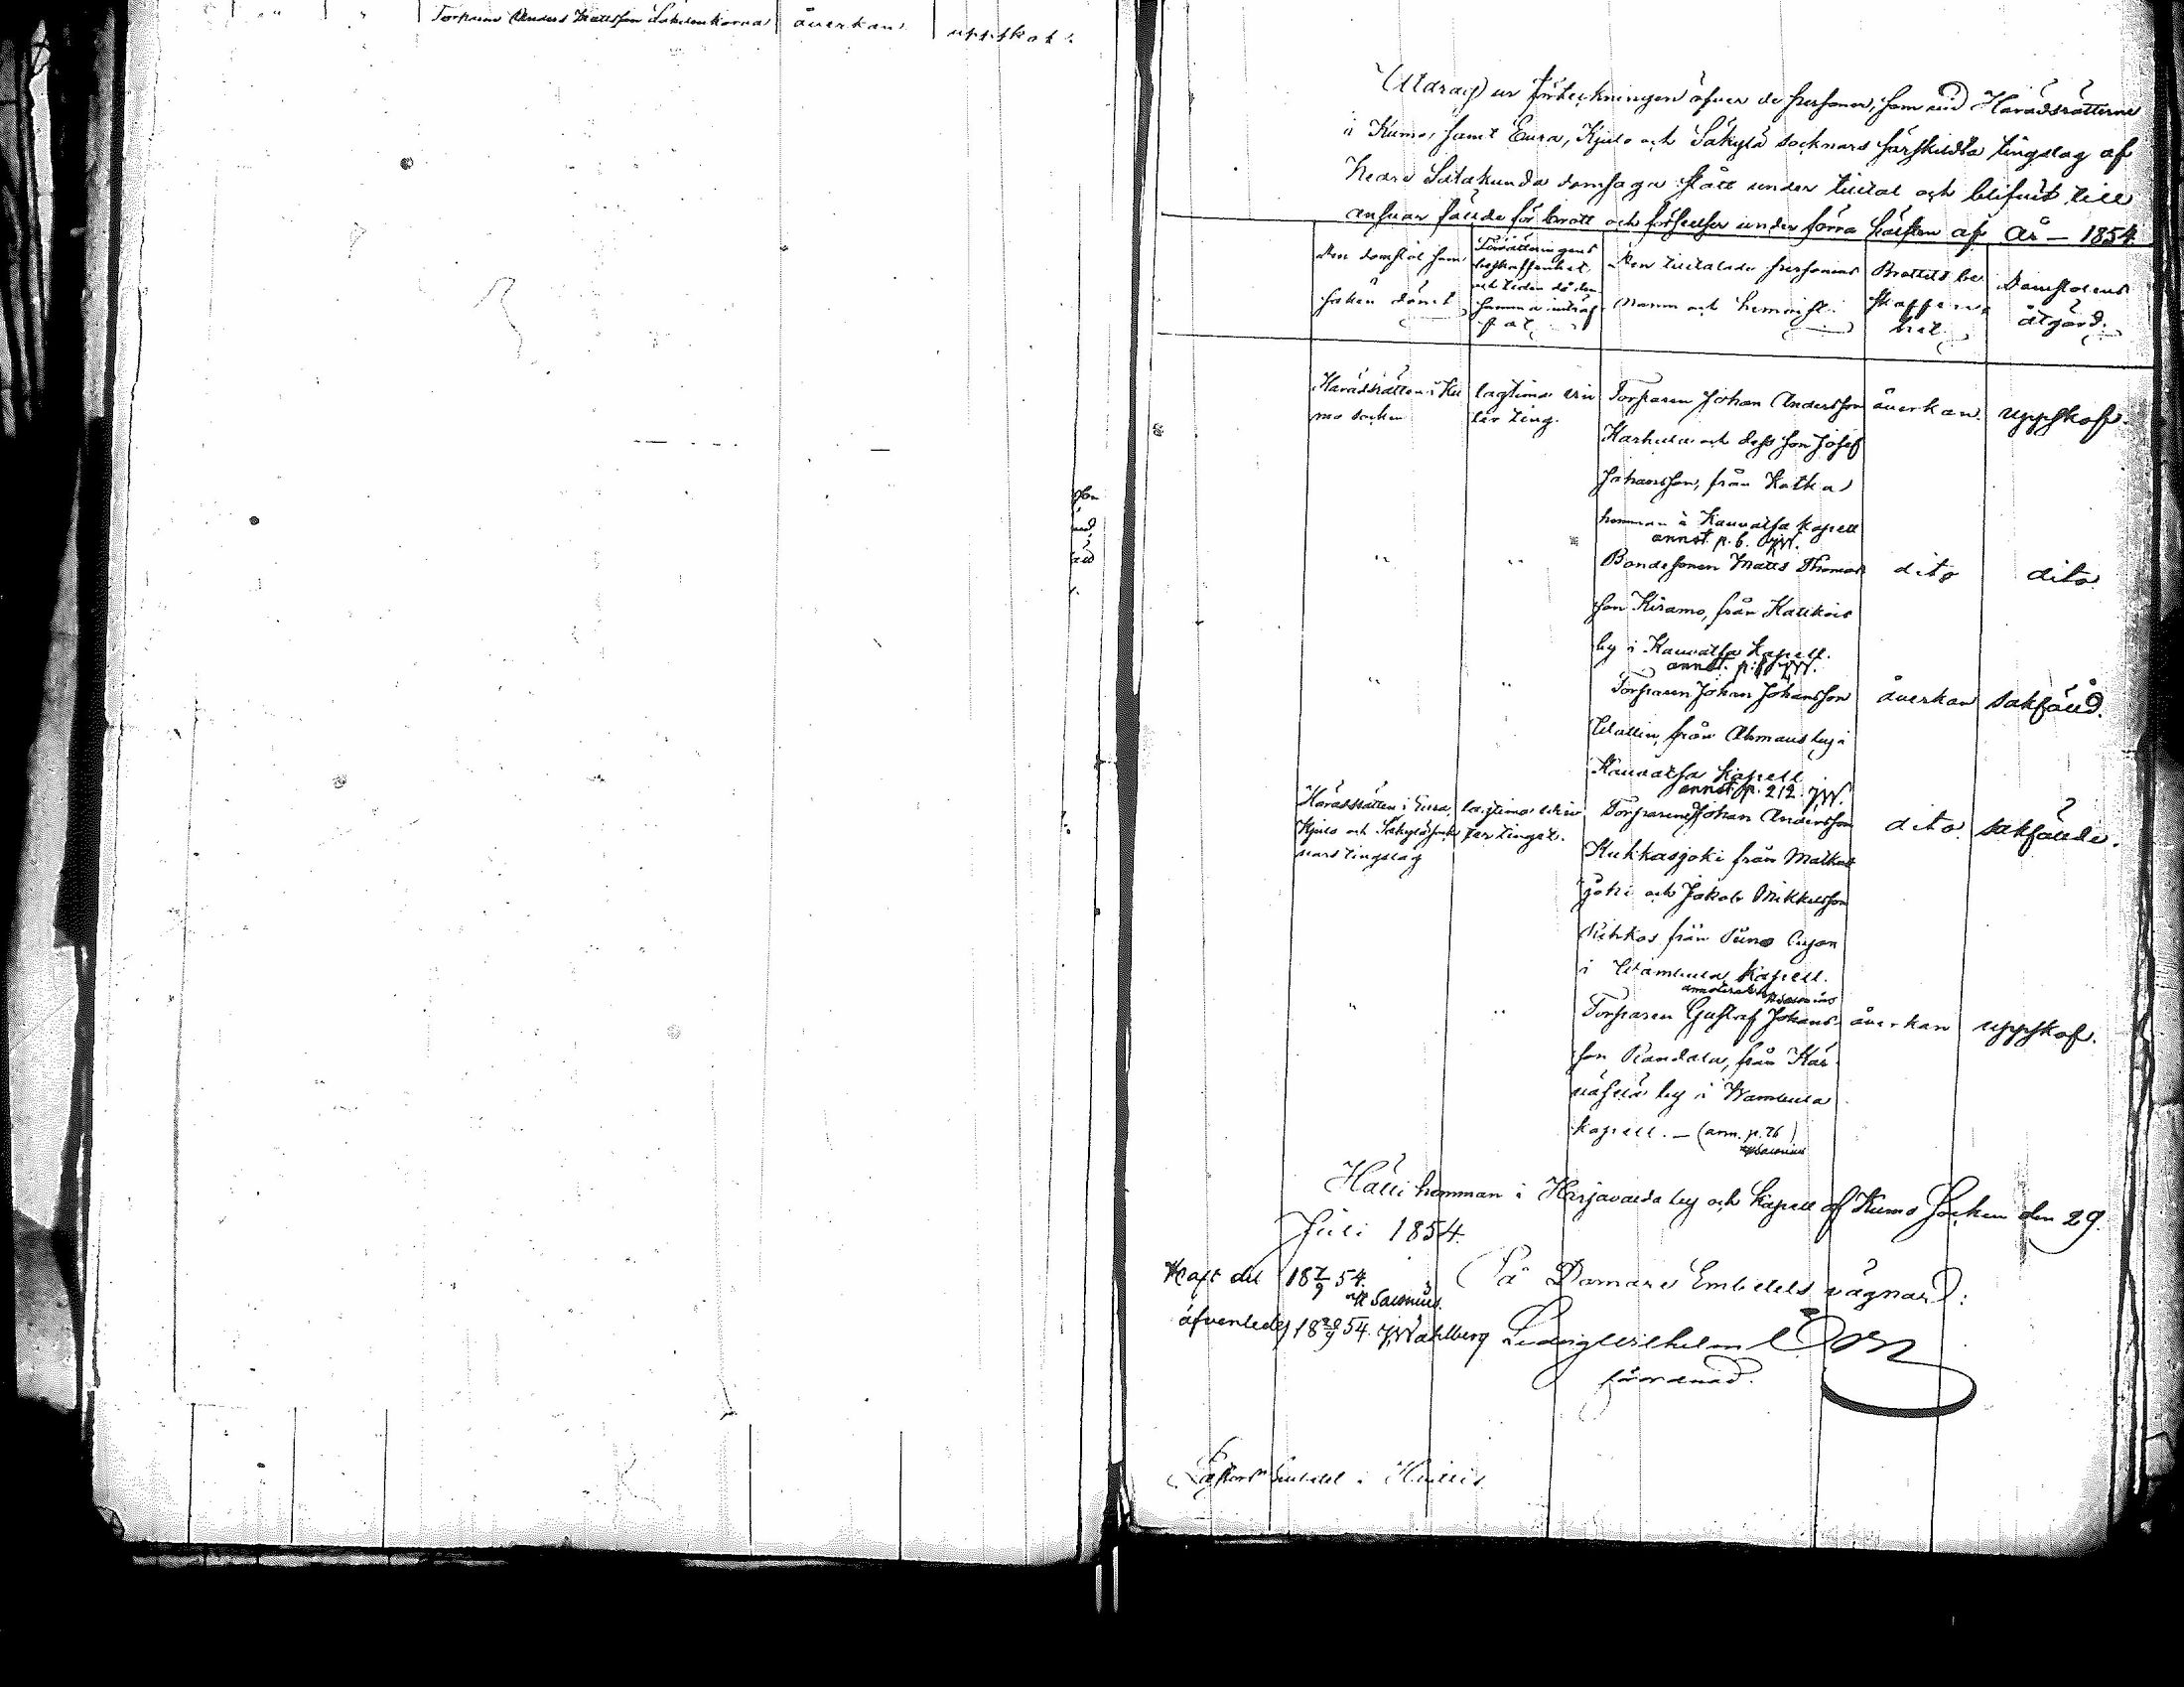 Torparen Anders Mattsson åverkan uppskof.
Utdrag ur förteckningen öfver de personer, som vid Häradsrätterne
i Kumo, samt Eura, Kjulo och Säkylä socknars särskildta tingslag af
Nedre Satakunda domsaga stått under tilltal och blifvit till
ansvar fällde för brott och förseelser under förra hälften af År – 1854.
Den domstol som
saken dömt
Förrättningens
beskaffenhet
och tiden då den
samma inträf
fat
Den tilltalade personens
namn och hemvist.
Brottets be
skaffen
het.
Domstolens
åtgärd.
Häradsrätten i Ku
mo socken
lagtima vin
ter ting.
Torparen Johan Andersson
Karhula och dess son Josef
Johansson, från
hemman i Kauvatsa kapell
annot. p. 6. JW.
åverkan.
uppskof.
Bondesonen Matts Thomas
son Kiramo, från
by i Kauvatsa kapell.
annot. p. JW.
dito
dito
Torparen Johan Johansson
Wallin, från by i
Kauvatsa kapell
annot. p. 212. JW.
åverkan
sakfälld.
Häradsrätten i Eura,
Kjulo och Säkylä sock
nars tingslag
lagtima vin
ter tinget.
Torparene Johan Andersson
Kukkasjoki från
joki och Jakob Mikkelsson
från
i Wambula kapell.
dito
sakfällde.
Torparen Gustaf Johans
son Randala, från Kär
näfvlä by i Wambula
kapell. – (ann. p. 76)
åverkan
uppskof.
hemman i Harjavalda by och kapell af Kumo Socken den 29.
Juli 1854.
Haft del 18 7/9 54.
På Domare Embetets vägnar:
äfvenledes 18 20/9 54. JWahlberg
Ludvig Wilhelm
förordnad.
Embetet i